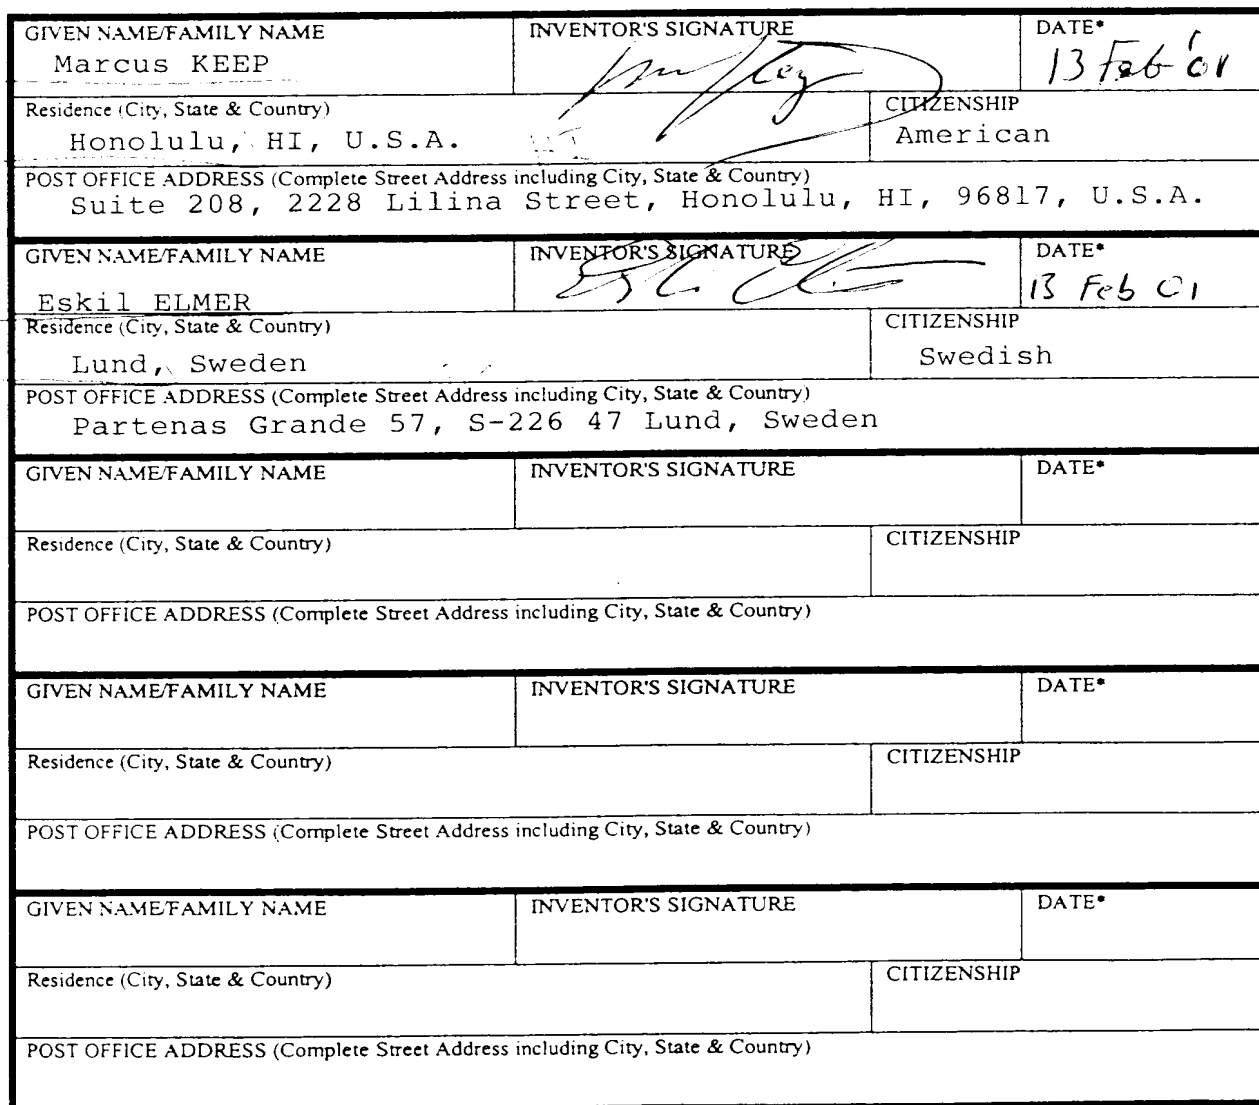 GIVEN NAME/FAMILY NAME INVENTOR'S SIGNATURE DATE*
Marcus KEEP 13 Feb '01
Residence (City, State & Country) CITIZENSHIP
Honolulu, HI, U.S.A. American
POST OFFICE ADDRESS (Complete Street Address including City, State & Country)
Suite 208, 2228 Lilina Street, Honolulu, HI, 96817, U.S.A.
GIVEN NAME/FAMILY NAME INVENTOR'S SIGNATURE DATE*
Eskil ELMER 13 Feb 01
Residence (City, State & Country) CITIZENSHIP
Lund, Sweden Swedish
POST OFFICE ADDRESS (Complete Street Address including City, State & Country)
Partenas Grande 57, S-226 47 Lund, Sweden
GIVEN NAME/FAMILY NAME INVENTOR'S SIGNATURE DATE*
Residence (City, State & Country) CITIZENSHIP
POST OFFICE ADDRESS (Complete Street Address including City, State & Country)
GIVEN NAME/FAMILY NAME INVENTOR'S SIGNATURE DATE*
Residence (City, State & Country) CITIZENSHIP
POST OFFICE ADDRESS (Complete Street Address including City, State & Country)
GIVEN NAME/FAMILY NAME INVENTOR'S SIGNATURE DATE*
Residence (City, State & Country) CITIZENSHIP
POST OFFICE ADDRESS (Complete Street Address including City, State & Country)